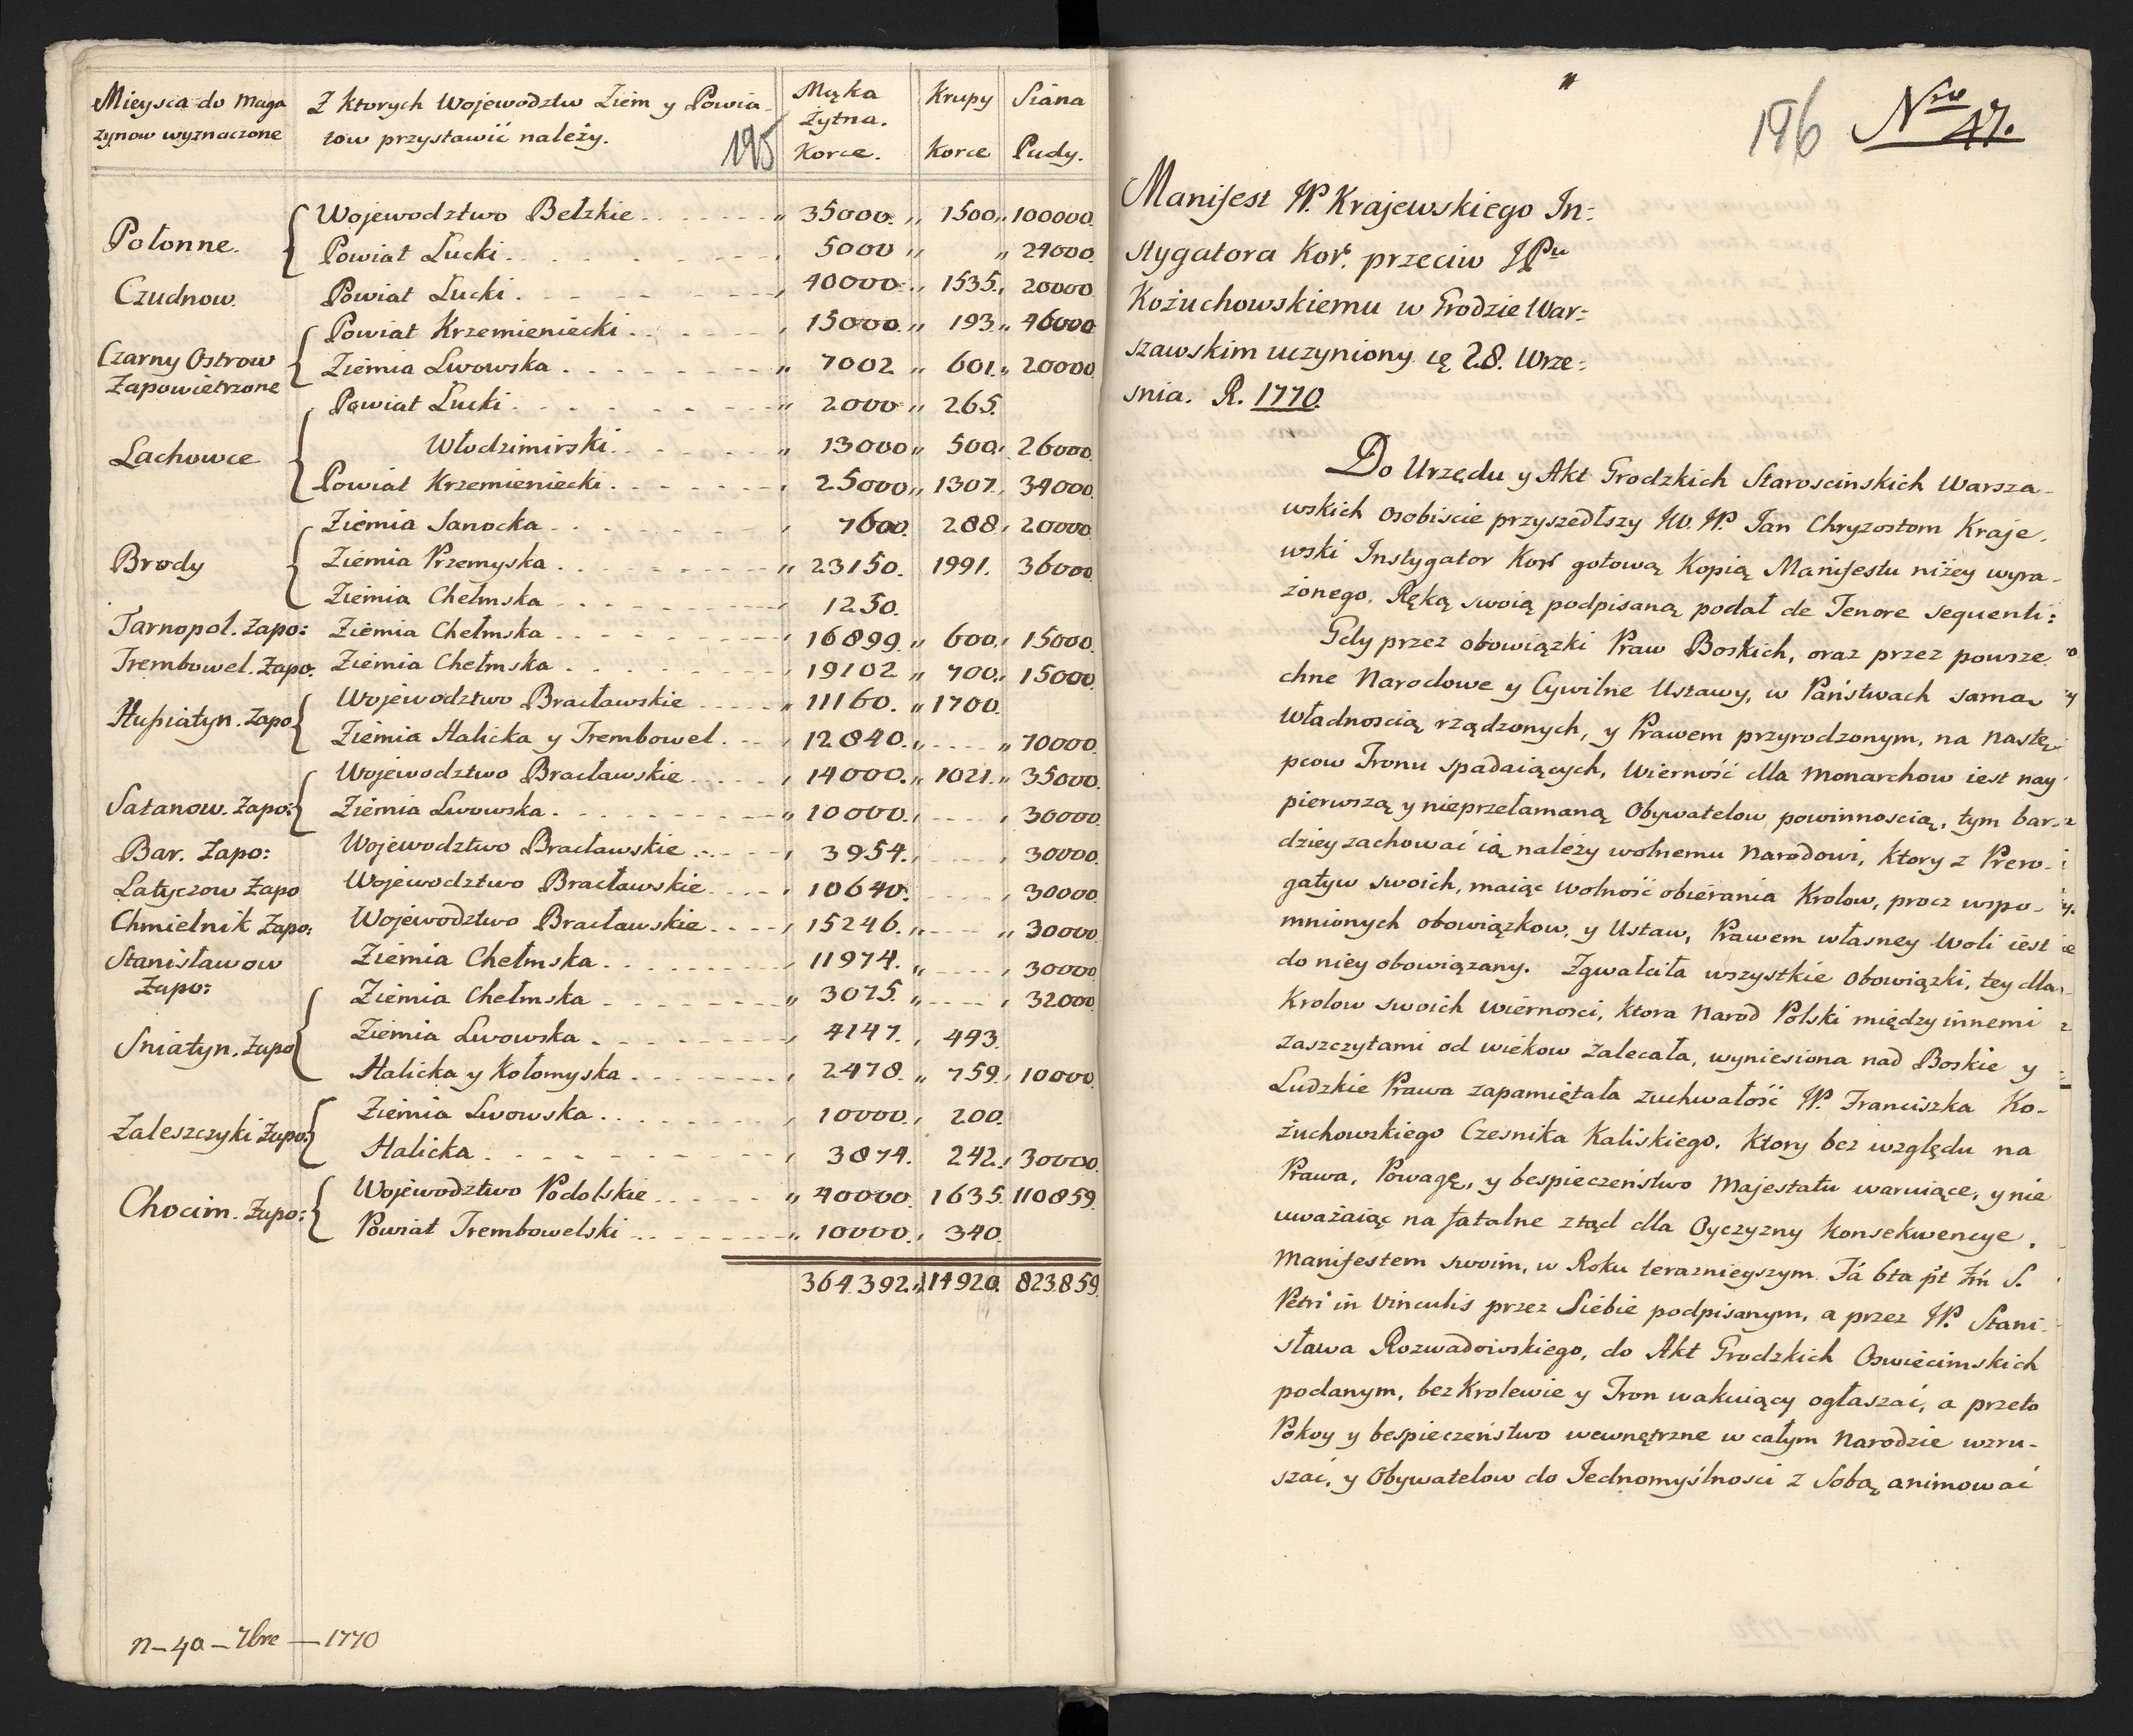 Mieysca do Maga zynow wyznaczone | Z Ktorych Wojewodztw Ziem y Powia tow przystawić należy. | Mąka żytna. Korce. | Krupy Korce | Siana Pudy.
195
Połonne. Wojewodztwo Bełzkie " 35000. " 1500. " 100000.
Powiat Łucki " 5000 " " 24000.
Czudnow. Powiat Łucki " 40000. " 1535. " 20000
Powiat Krzemieniecki " 15000. " 193. " 46000
Czarny Ostrow Ziemia Lwowska " 7002 " 601. " 20000.
Zapowietrzone
Powiat Łucki " 2000 " 265.
Włodzimirski " 13000 " 500. " 26000.
Lachowce
Powiat Krzemieniecki " 25000 " 1307. " 34000.
Ziemia Sanocka " 7600. 288. " 20000
Brody Ziemia Przemyska " 23150. 1991. 36000
Ziemia Chełmska " 1250.
Tarnopol. Zapo: Ziemia Chełmska " 16899. " 600. " 15000.
Trembowel. Zapo. Ziemia Chełmska " 19102 " 700. " 15000
Husiatyn. Zapo Wojewodztwo Bracławskie " 11160. " 1700.
Ziemia Halicka y Trembowel. " 12840. " " 70000.
Wojewodztwo Bracławskie " 14000. " 1021. " 35000.
Satanow. Zapo: Ziemia Lwowska " 10000. " " 30000.
Bar. Zapo: Wojewodztwo Bracławskie " 3954. " " 30000.
Latyczow Zapo Wojewodztwo Bracławskie " 10640. " 30000
Chmielnik Zapo: Wojewodztwo Bracławskie " 15246. " " 30000
Stanisławow Zapo: Ziemia Chełmska " 11974. " " 30000
Ziemia Chełmska " 3075. " " 32000
Sniatyn. Zapo Ziemia Lwowska " 4147. " 493.
Halicka y Kołomyska " 2478. " 759. " 10000.
Zaleszczyki Zapo: Ziemia Lwowska " 10000. " 200.
Halicka " 3874. 242. " 30000.
Chocim. Zapo: Wojewodztwo Podolskie " 40000 1635. 110859.
Powiat Trembowelski " 10000. " 340.
364.392. " 14920. 823.859.
n–40–7bre–1770
196 Nro 47.
Manifest W. Krajewskiego In:
stygatora Kor. przeciw JPu
Kożuchowskiemu w Grodzie War:
szawskim uczyniony. 28. Wrze:
snia. R. 1770.
Do Urzędu y Akt Grodzkich Staroscinskich Warsza-
wskich osobiscie przyszedłszy W. Jan Chryzostom Kraje,
wski Instygator Kor gotową Kopią Manifestu niżey wyra-
żonego, Ręką swoią podpisaną podał de Tenore sequenti:
Gdy przez obowiązki Praw Boskich, oraz przez powsze
chne Narodowe y Cywilne Ustawy, w Państwach samo
władnoscią rządzonych, y Prawem przyrodzonym, na nastę-
pcow Tronu spadaiących, Wierność dla Monarchow iest nay
pierwszą y nieprzełamaną Obywatelow powinnoscią, tym bar-
dziey zachować ią należy wolnemu Narodowi, Ktory z Prero-
gatyw swoich, maiąc wolność obierania Krolow, procz wspo-
mnionych obowiązkow, y Ustaw, Prawem własney Woli iest
do niey obowiązany. Zgwałciła wszystkie obowiązki, tey dla
Krolow swoich wiernosci, Ktora Narod Polski między innemi
zaszczytami od wiekow zalecała, wyniesiona nad Boskie y
Ludzkie Prawa zapamiętała zuchwałość W. Franciszka Ko-
żuchowskiego Czesnika Kaliskiego, Ktory bez względu na
Prawa, Powagę, y bespieczeństwo Majestatu waruiące, y nie
uważaiąc na fatalne ztąd dla Oyczyzny Konsekwencye,
Manifestem swoim, w Roku terazniegszym Fa 6ta pt Fm S.
Petri in Vinculis przez Siebie podpisanym, a przez W. Stani-
sława Rozwadowskiego, do Akt Grodzkich Oswiecimskich
podanym, bez Krolewie y Tron wakuiący ogłaszać, a przeto
Pokoy y bespieczeństwo wewnętrzne w całym Narodzie wzru-
szać, y Obywatelow do Jednomyślnosci z Sobą animować